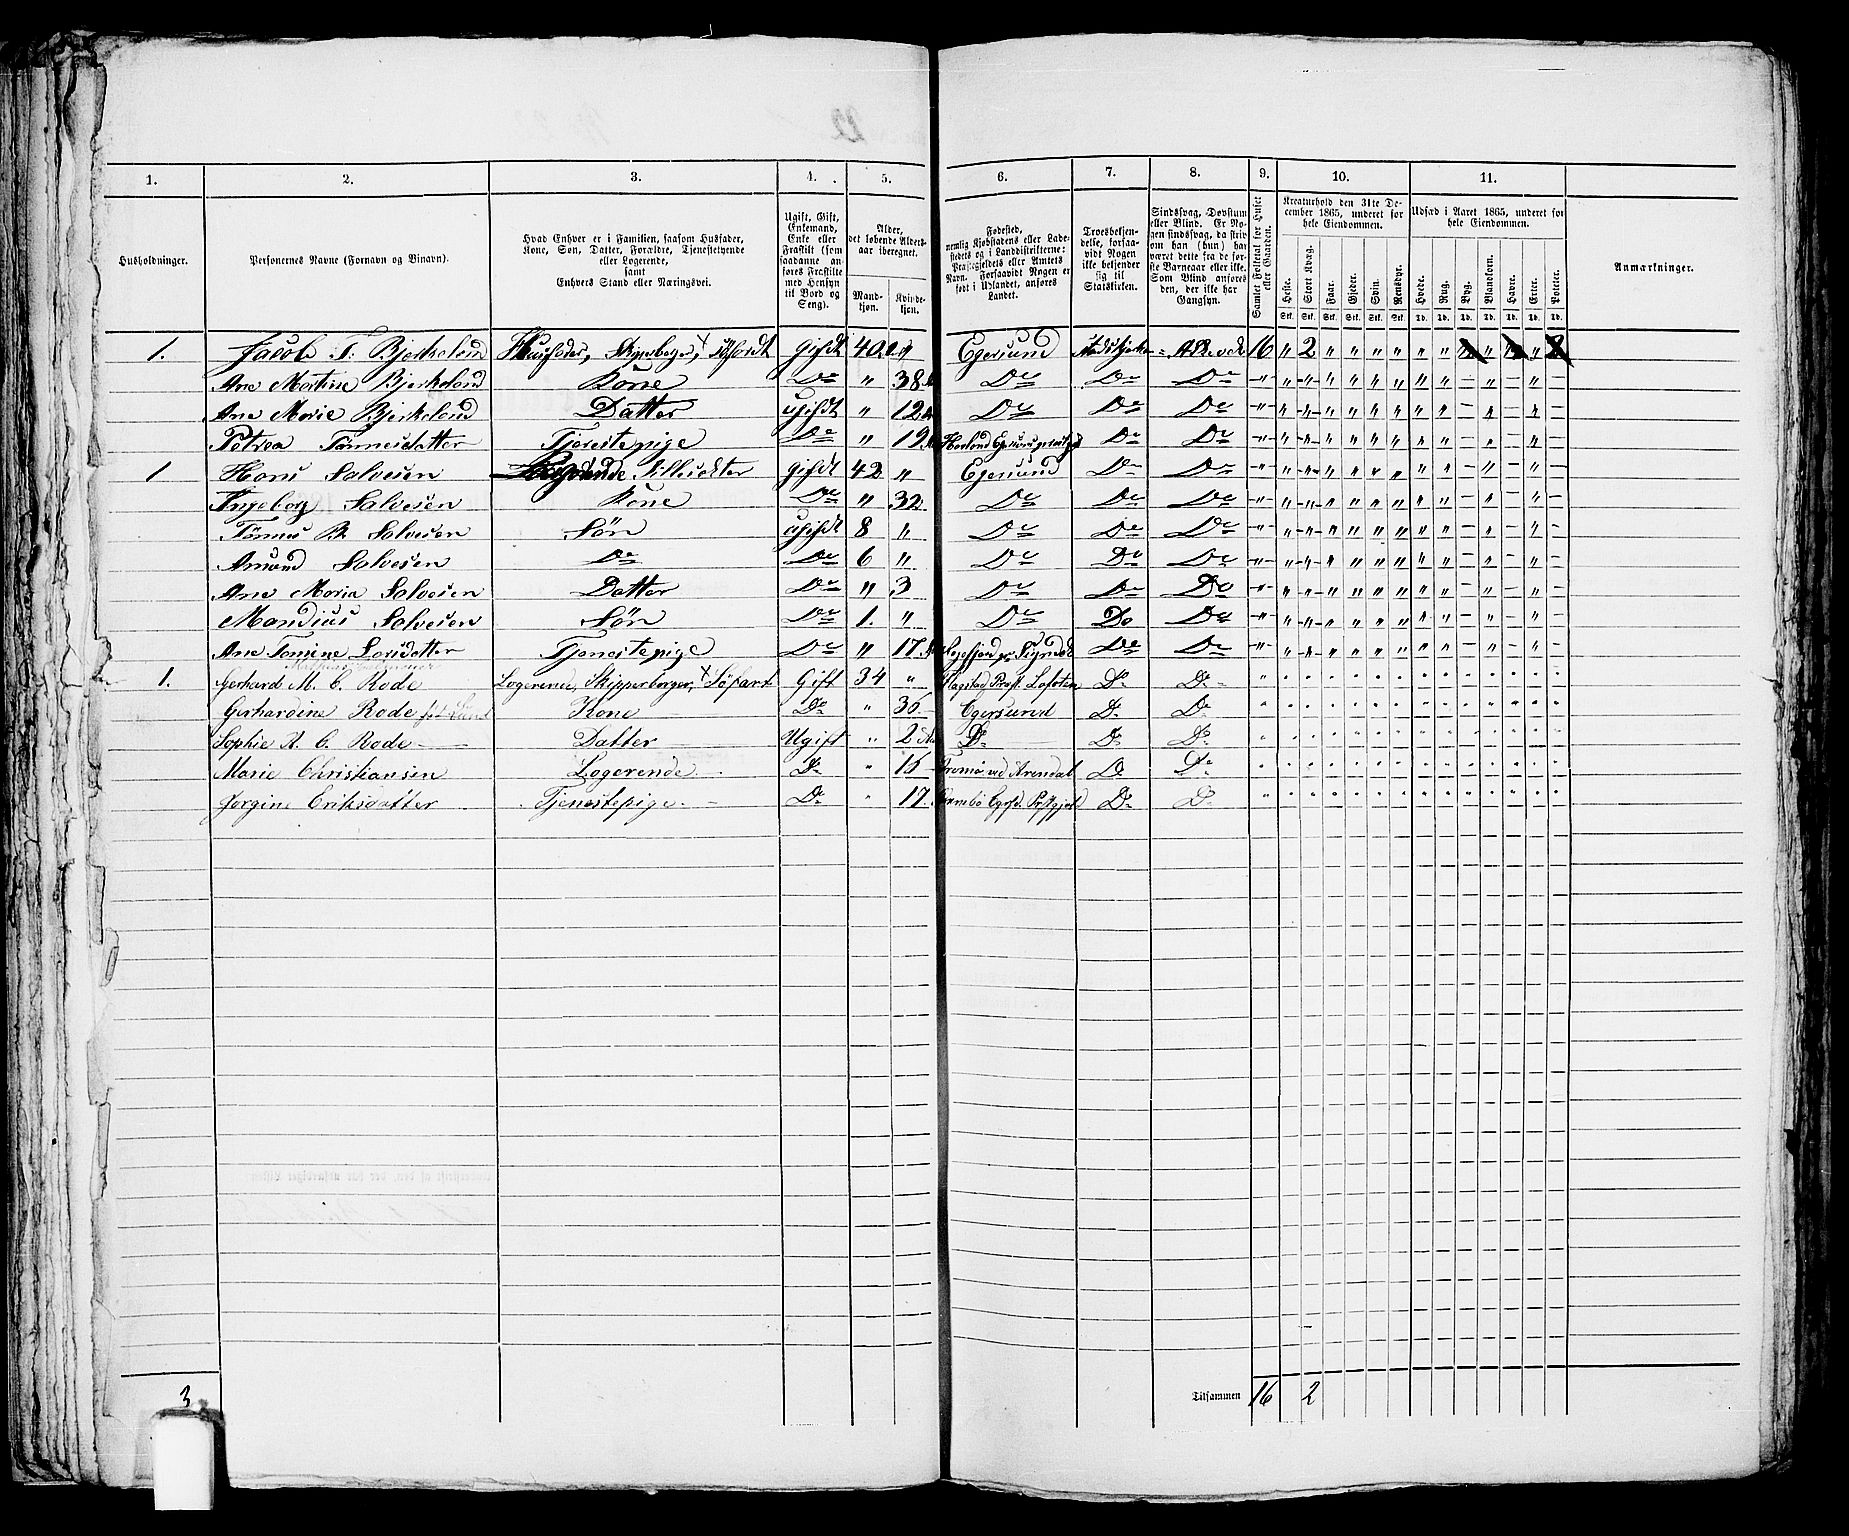 1. 2. 3. 4. 5. 6. 7. 8. 9. 10. 11.
Husholdninger.
Personernes Navne (Fornavn og Binavn).
Hvad Enhver er i Familien, saasom Husfader,
Kone, Søn, Datter, Forældre, Tjenestetyende
eller Logerende,
samt
Enhvers Stand eller Næringsvei.
Ugift, Gift,
Enkemand,
Enke eller
Fraskilt (som
saadanne an-
føres Fraskilte
med Hensyn
til Bord og
Seng).
Alder,
det løbende Alders-
aar iberegnet.
Mand-
kjøn.
Kvinde-
kjøn.
Fødested,
nemlig Kjøbstadens eller Lade-
stedets og i Landdistrikterne:
Præstegjeldets eller Amtets
Navn. Forsaavidt Nogen er
født i Udlandet, anføres
Landet.
Troesbekjen-
delse, forsaa-
vidt Nogen
ikke bekjender
sig til
Statskirken.
Sindssvag, Døvstum
eller Blind. Er No-
gen sindssvag, da skriv
om han (hun) har
været dette fra de før-
ste Barneaar eller ikke.
Som Blind anføres
den, der ikke har
Gangsyn.
Samlet Folketal for Huset
eller Gaarden.
Kreaturhold den 31te De-
cember 1865, underet for
hele Eiendommen.
Heste. Stort Kvæg. Faar. Gjeder. Svin. Rensdyr.
Stk. Stk. Stk. Stk. Stk. Stk.
Udsæd i Aaret 1865, underet for
hele Eiendommen.
Hvede. Rug. Byg. Blandkorn. Havre. Erter. Poteter.
Td. Td. Td. Td. Td. Td. Td.
Anmærkninger.
1. Jacob T. Bjerkelund Huusfader, Skipsborger, Søfardt Gifdt 40 " Egersund 16 " 2 " " " " " " "
Ane Martine Bjerkeland Kone Do " 38 Do Do Do
Ane Marie Bjerkeland Datter Ugifdt " 12 Do Do Do
Petrea Tønnesdatter Tjenestepige Do " 19 Do Do
1 Hans Salvesen Gifdt 42 " Egersund Do Do
Ingeborg Salvesen Kone Do " 32 Do Do Do
Tønnes B. Salvesen Søn Ugifdt 8 " Do Do Do
Amund Salvesen Do Do 6 " Do Do Do
Ane Maria Salvesen Datter Do " 3 Do Do Do
Mandius Salvesen Søn Do 1. " Do Do Do
Ane Tomine Larsdatter Tjenestepige Do " 17 Do Do
1. Gerhard M. C. Rode Logerende, Skipperborger, Søfart Gift 34 " Lofoten Do Do
Gerhardine Rode Kone Do " 36 Egersund Do Do
Sophie A. C. Rode Datter Ugift " 2 Do Do Do
Marie Christiansen Logerende Do " 16 Tromø ved Arendal Do Do
Jørgine Eriksdatter Tjenestepige Do " 17 Do Do
3 Tilsammen 16 2